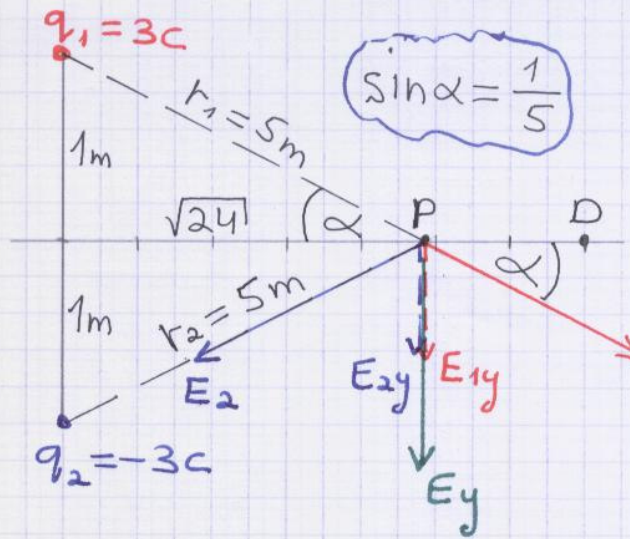 q₁ = 3c
sinα = 1/5
r₁ = 5m
1m
√24
α
P
D
α
1m
r₂ = 5m
E₂
E₂y
E₁y
q₂ = -3c
Ey